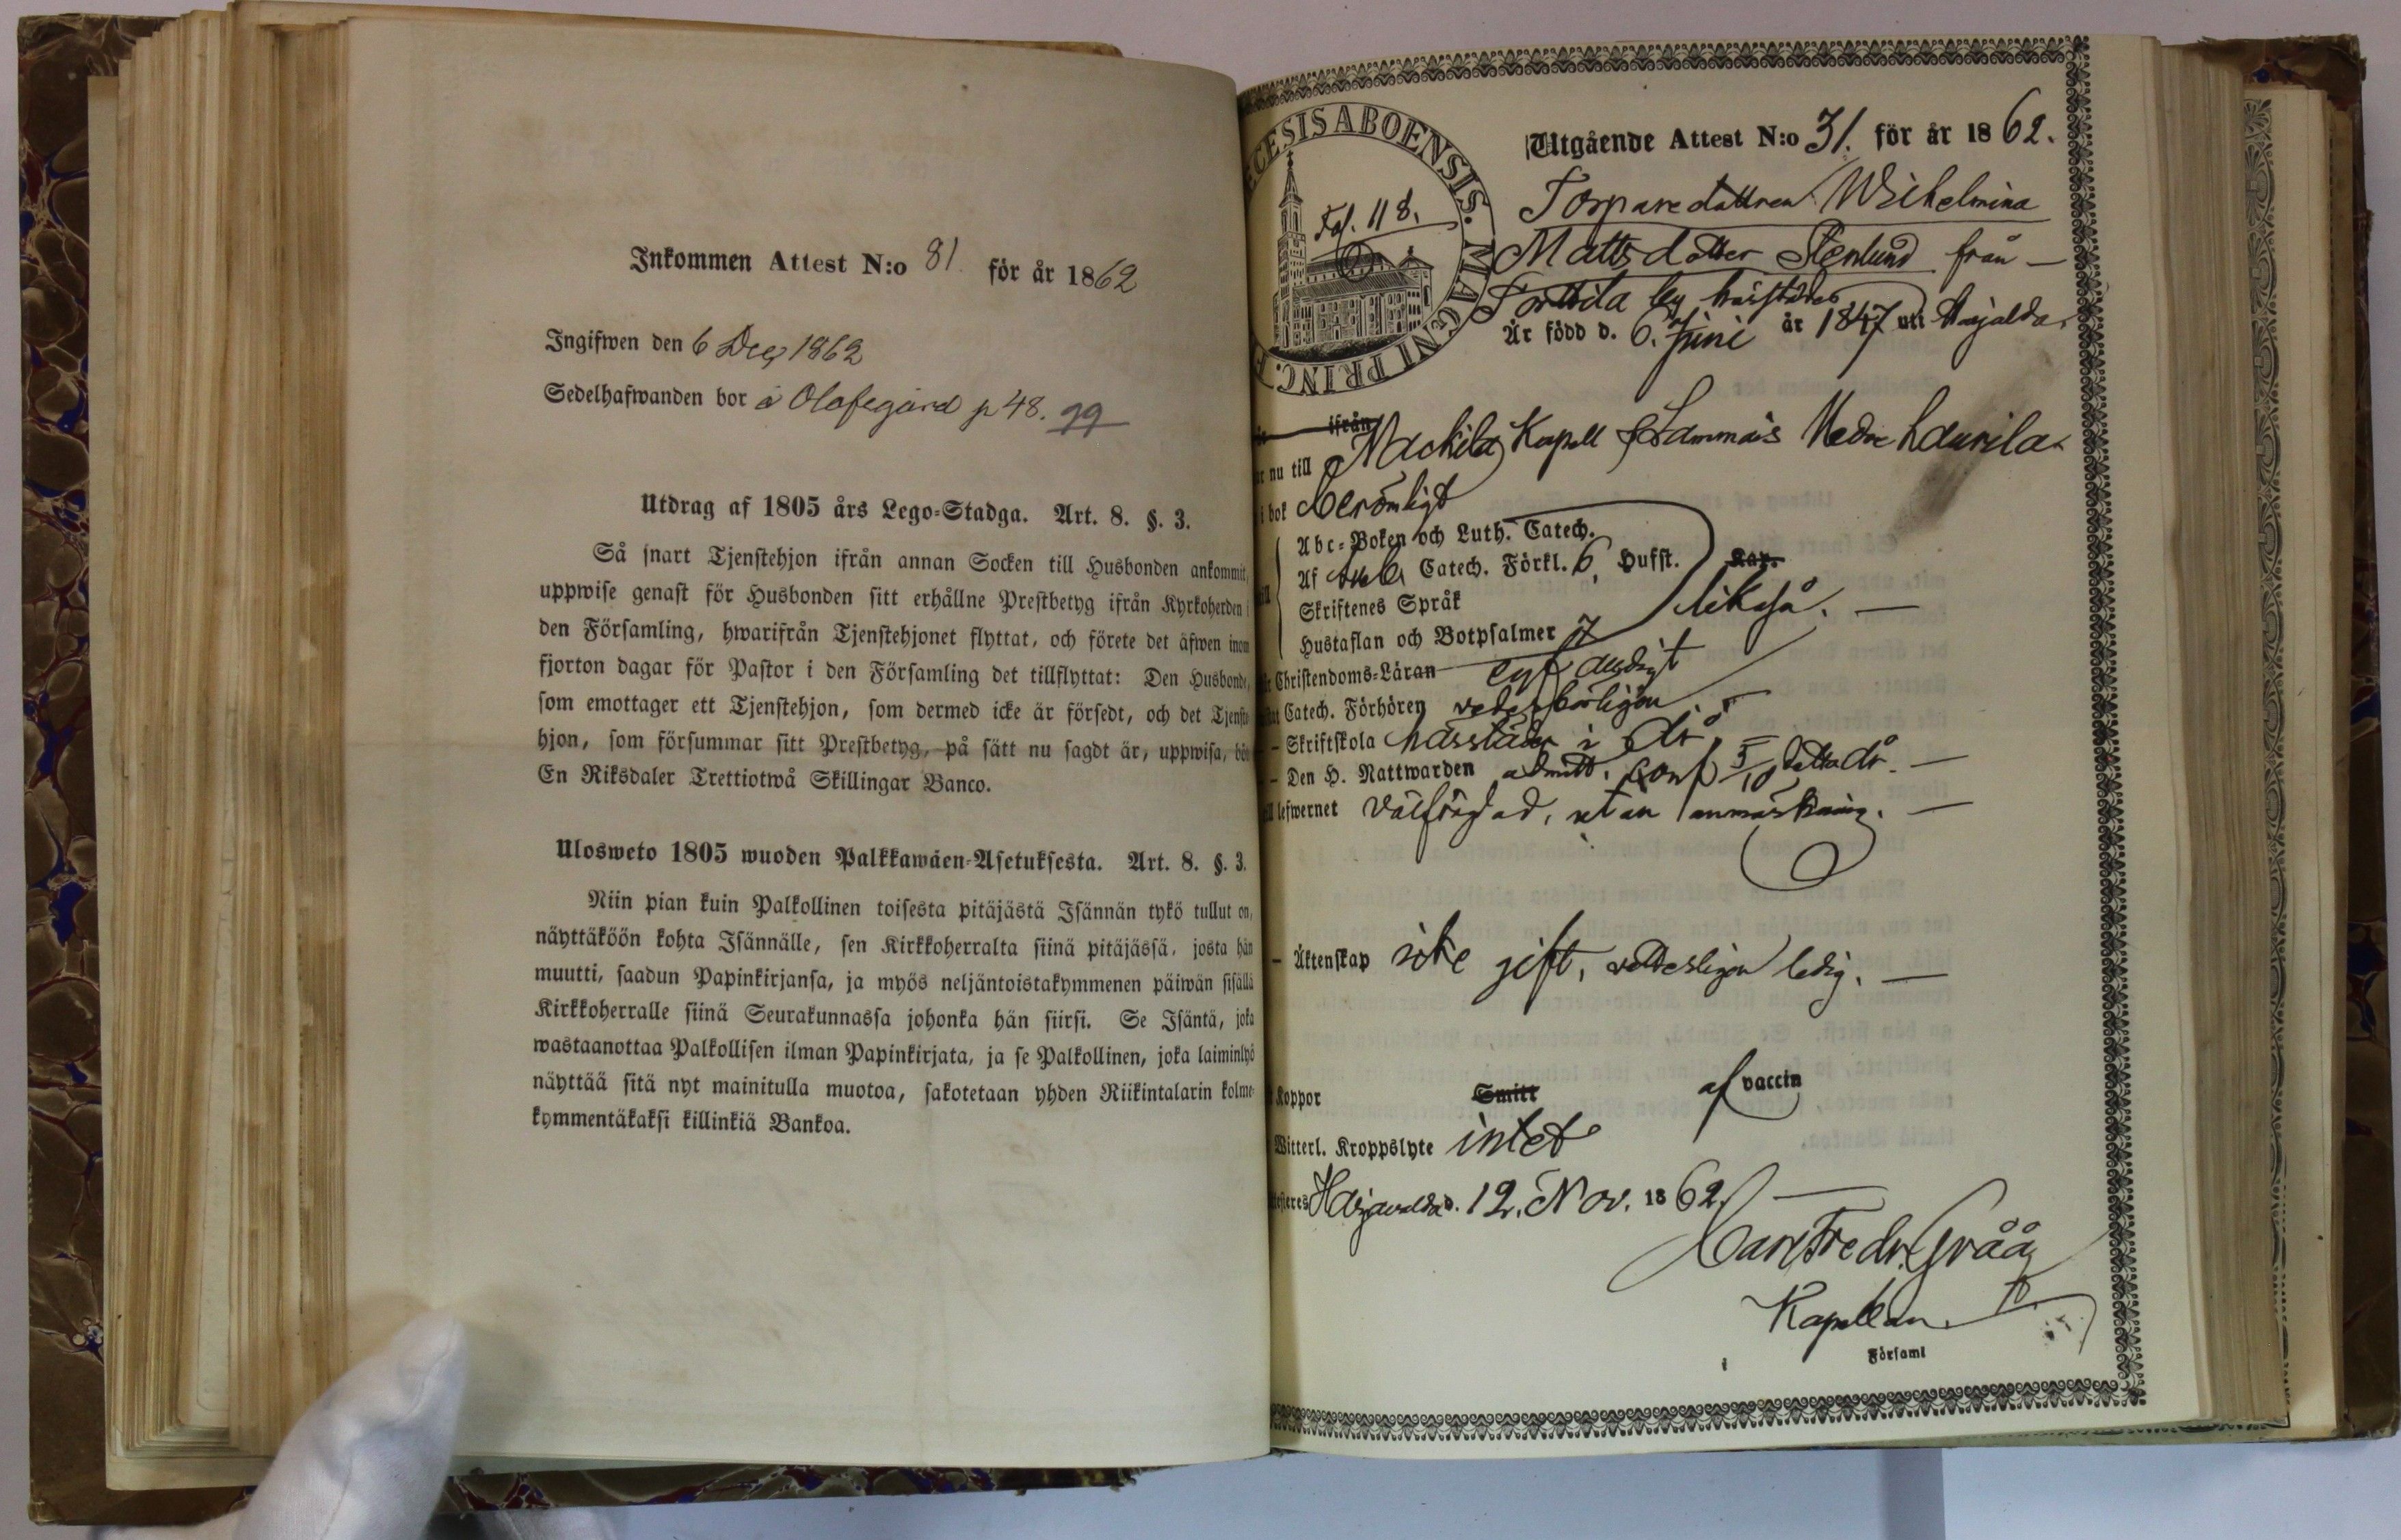 Inkommen Attest N:o 81 för år 1862
Ingifwen den 6 Dec 1862
Sedelhafwanden bor å Olofsgård p 48. 99
Utdrag af 1805 års Lego-Stadga. Art. 8. §. 3.
Så snart Tjenstehjon ifrån annan Socken till Husbonden ankommit,
uppwise genast för Husbonden sitt erhållne Prestbetyg ifrån Kyrkoherden i
den Församling, hwarifrån Tjenstehjonet flyttat, och förete det äfwen inom
fjorton dagar för Pastor i den Församling det tillflyttat: Den Husbonde,
som emottager ett Tjenstehjon, som dermed icke är försedt, och det Tjenste
hjon, som försummar sitt Prestbetyg, på sätt nu sagdt är, uppwisa, böt
En Riksdaler Trettiotwå Skillingar Banco.
Ulosweto 1805 wuoden Palkkawäen-Asetuksesta. Art. 8. §. 3.
Niin pian kuin Palkollinen toisesta pitäjästä Isännän tykö tullut on,
näyttäköön kohta Isännälle, sen Kirkkoherralta siinä pitäjässä, josta hän
muutti, saadun Papinkirjansa, ja myös neljäntoistakymmenen päiwän sisällä
Kirkkoherralle siinä Seurakunnassa johonka hän siirsi. Se Isäntä, joka
wastaanottaa Palkollisen ilman Papinkirjata, ja se Palkollinen, joka laiminlyö
näyttää sitä nyt mainitulla muotoa, sakotetaan yhden Riikintalarin kolme-
kymmentäkaksi killinkiä Bankoa.
ECESIS ABOENSIS. MAGNI PRINC. F
Fol. 118.
Utgående Attest N:o 31. för år 1862.
Torparedottren Wilhelmina
Mattsdotter Stenlund från —
Torttila by härstädes
Är född d. 6. Juni år 1847 uti Harjalda
ifrån
nu till Nackila Kapell f Lammais Nedre Laurila
i bok berömligt
Abc-Boken och Luth. Catech.
Af Catech. Förkl. 6 Hufst. Kap.
Skriftenes Språk likaså. —
Hustaflan och Botpsalmer 7
Christendoms-Läran
Catech. Förhören vederbörligen
– Skriftskola härstädes i År
– Den H. Nattwarden admitt. conf 5/10 detta år. —
lefwernet välfrägdad, utan anmärkning. —
– Äktenskap icke gift, vitterligen ledig. —
Koppor Smitt af vaccin
Witterl. Kroppslyte intet
Attesteres Harjavalda d. 12. Nov. 1862. —
Carl Fredr. Gråå
Kapellan
i Församl